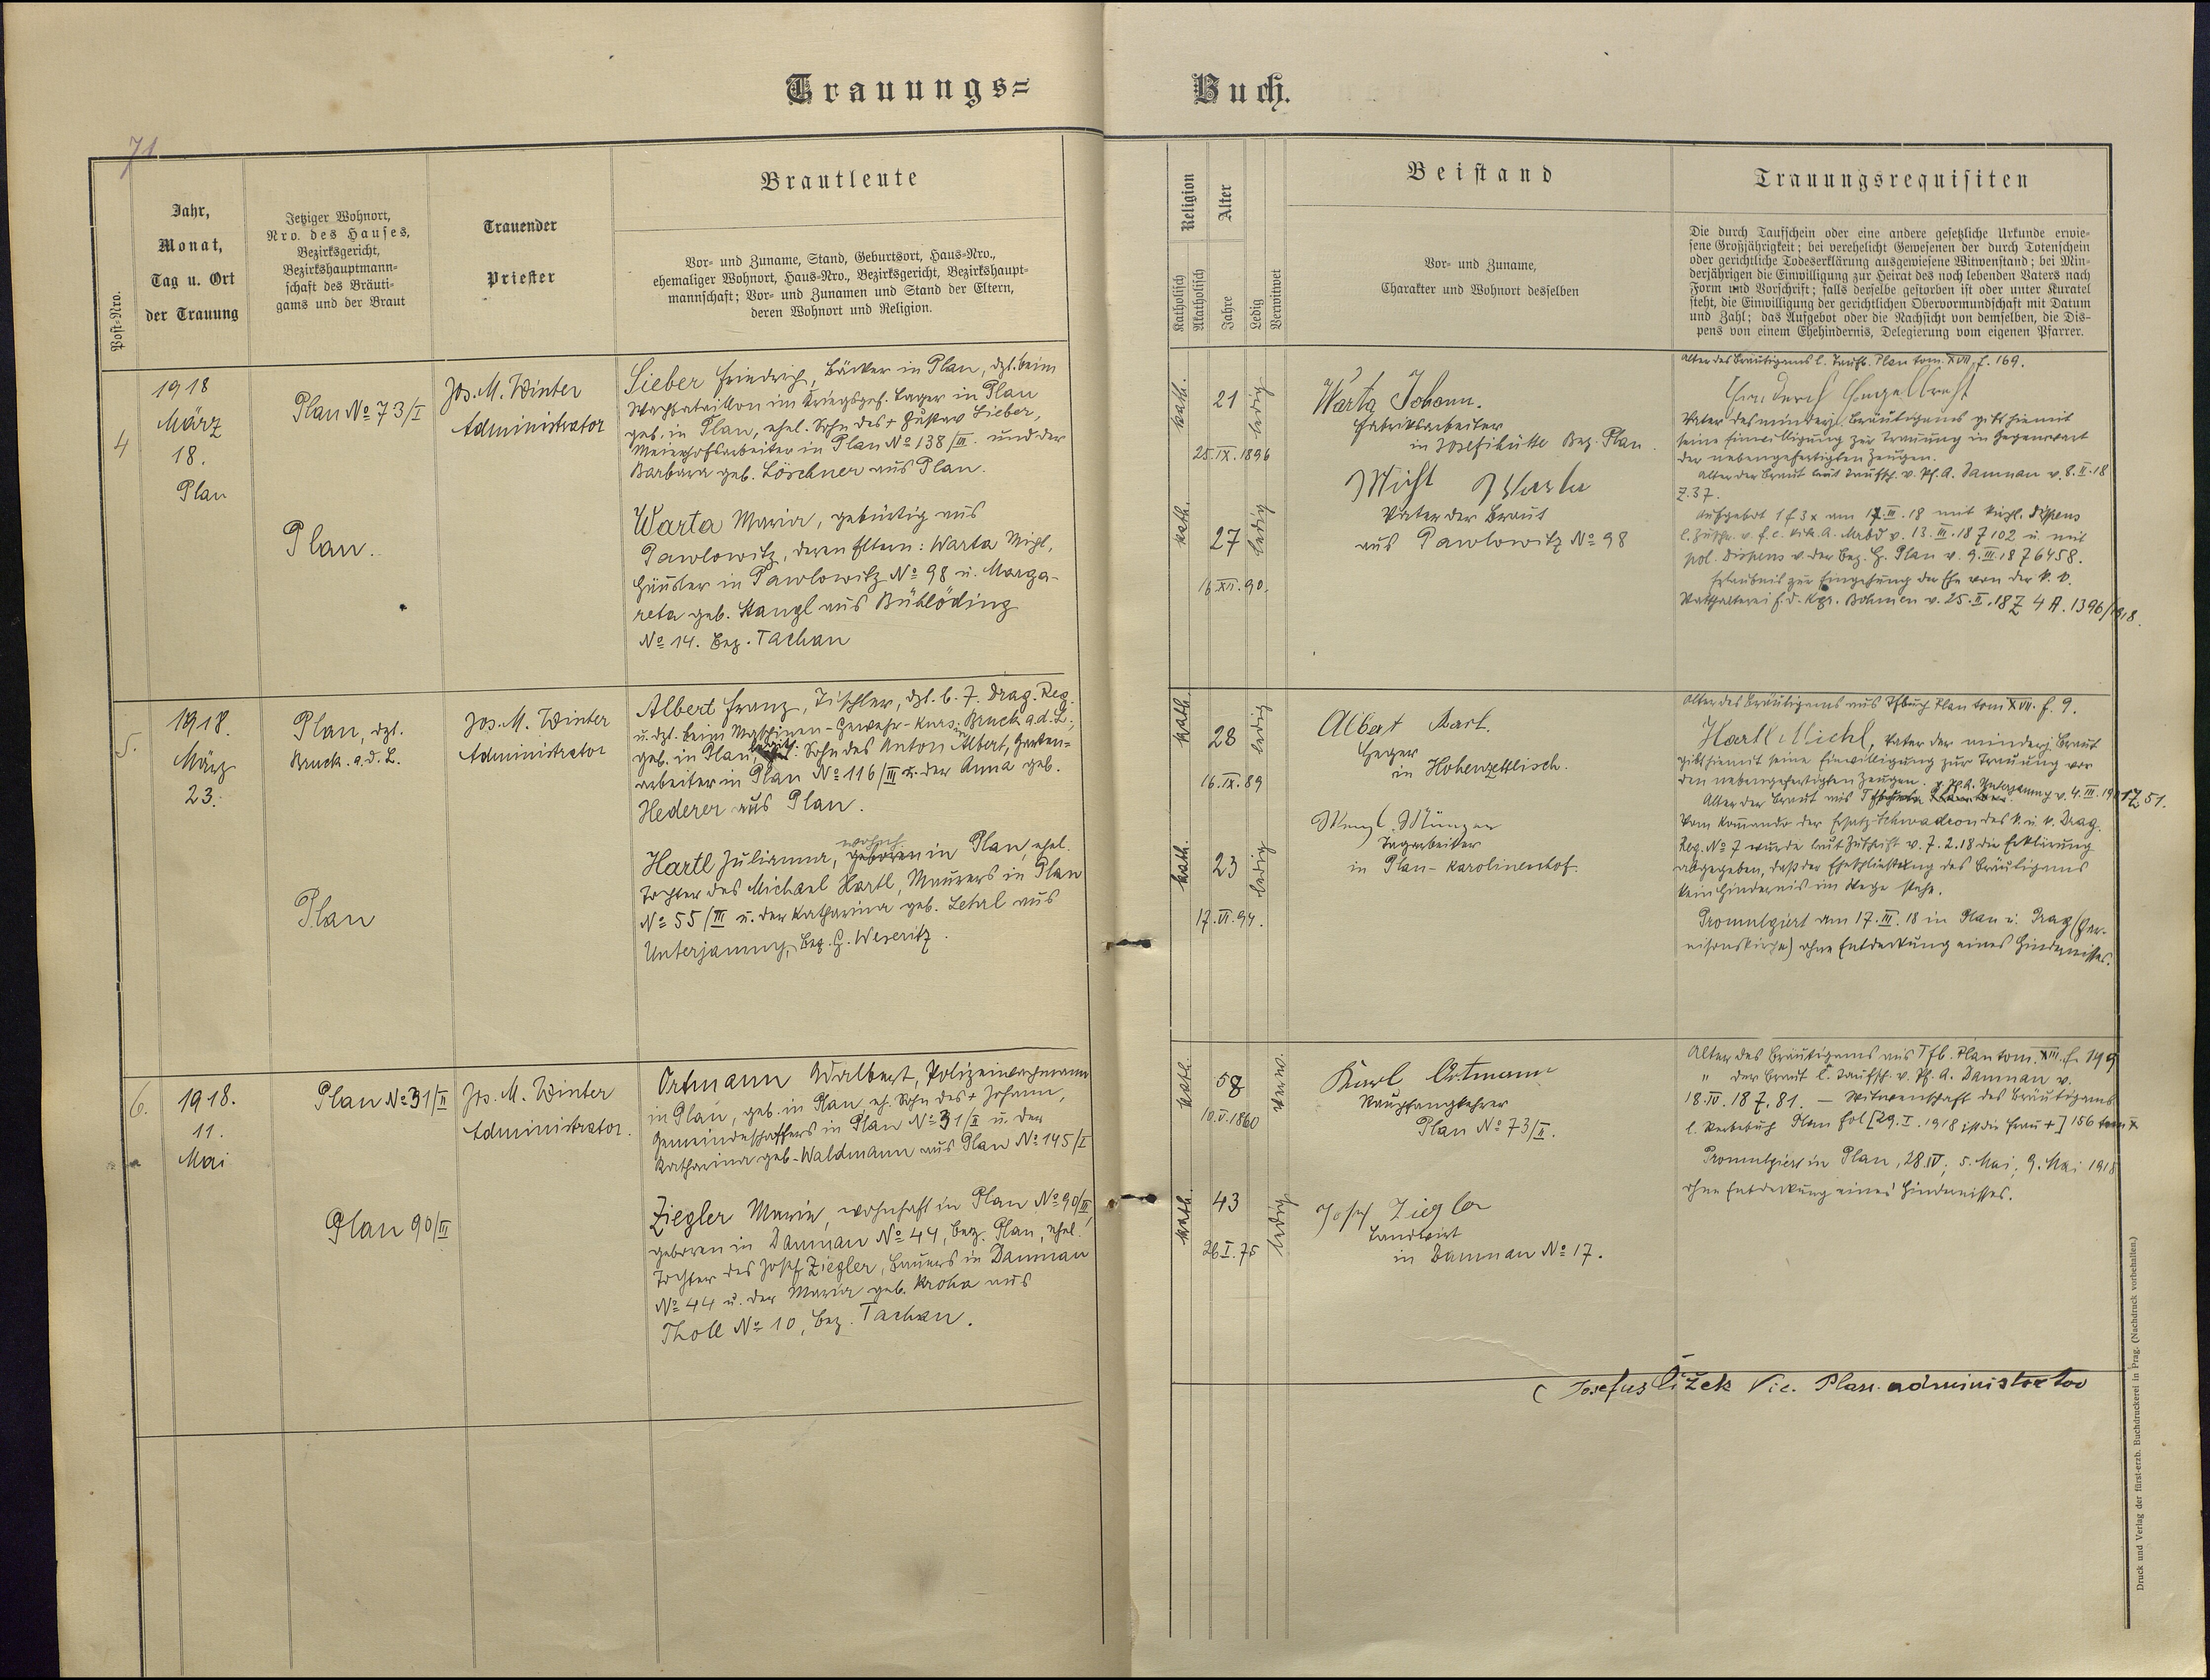 Trauungs= Buch.
71
Post=Nro.
Jahr,
Monat,
Tag u. Ort
der Trauung
Jetziger Wohnort,
Nro. des Hauses,
Bezirksgericht,
Bezirkshauptmann=
schaft des Bräuti=
gams und der Braut
Trauender
Priester
Brautleute
Vor= und Zuname, Stand, Geburtsort, Haus=Nro.,
ehemaliger Wohnort, Haus=Nro., Bezirksgericht, Bezirkshaupt=
mannschaft; Vor= und Zunamen und Stand der Eltern,
deren Wohnort und Religion.
Religion
Katholisch
Akatholisch
Alter
Jahre
Ledig
Verwitwet
Beistand
Vor= und Zuname,
Charakter und Wohnort desselben
Trauungsrequisiten
Die durch Taufschein oder eine andere gesetzliche Urkunde erwie=
sene Großjährigkeit; bei verehelicht Gewesenen der durch Totenschein
oder gerichtliche Todeserklärung ausgewiesene Witwenstand; bei Min=
derjährigen die Einwilligung zur Heirat des noch lebenden Vaters nach
Form und Vorschrift; falls derselbe gestorben ist oder unter Kuratel
steht, die Einwilligung der gerichtlichen Obervormundschaft mit Datum
und Zahl; das Aufgebot oder die Nachsicht von demselben, die Dis=
pens von einem Ehehindernis, Delegierung vom eigenen Pfarrer.
4
1918
März
18.
Plan
Plan No 73/I
Plan.
Jos. M. Winter
Administrator
Sieber Friedrich, Bäcker in Plan, dzt. beim
Wachbataillon im Kriegsgef. Lager in Plan
geb. in Plan, ehel. Sohn des + Gustav Sieber,
Meierhofsarbeiter in Plan No 138/III. und der
Barbara geb. Löschner aus Plan.
Warta Maria, gebürtig aus
Pawlowitz, deren Eltern: Warta Michl,
Häusler in Pawlowitz No 98 u. Marga-
reta geb. Stangl aus Bühlöding
No 14. Bez. Tachau
kath.
21
ledig
25.IX.1896
kath.
27
ledig
16.XII.90.
Warta Johann.
Fabriksarbeiter
in Josefihütte Bez. Plan.
Michl Warta
Vater der Braut
aus Pawlowitz No 98
Alter des Bräutigams l. Taufb. Plan tom. XVII, f. 169.
Vater des minderj. Bräutigams gibt hiemit
seine Einwilligung zur Trauung in Gegenwart
der nebengefertigten Zeugen.
Alter der Braut laut Taufsch. v. Pf. A. Damnau v. 8.II.18
Z. 37.
Aufgebot 1 f 3x am 17.III.18 mit kirchl. Dispens
l. Zuschr. v. f. e. Vik. A. v. 13.III.18 Z 102 u. mit
pol. Dispens v. der Bez. H. Plan v. 9.III.18 Z 6458.
Erlaubnis zur Eingehung der Ehe von der k. k.
Statthalterei f. d. Kgr. Böhmen v. 25.II.18 Z 4 A. 1396/1918.
5.
1918.
März
23.
Plan, dzt.
Bruck. a. d. L.
Plan
Jos. M. Winter
Administrator
Albert Franz, Tischler, dzt. b. 7. Drag. Reg.
u. dzt. beim Maschinen-Gewehr-Kurs in Bruck a. d. L.,
geb. in Plan, Sohn des Anton Albert, Garten=
arbeiter in Plan No 116/III u. der Anna geb.
Hederer aus Plan.
wohnh.
Hartl Julianna, geboren in Plan, ehel.
Tochter des Michael Hartl, Maurers in Plan
No 55/III u. der Katharina geb. Lehrl aus
Unterjamny, Bez. H. Weseritz.
kath.
28
ledig
16.IX.89
kath.
23
ledig
17.VI.94.
Albert Karl.
Heger
in Hohenzetlisch.
Wenzl Münzer
Tagarbeiter
in Plan-Karolinenhof.
Alter des Bräutigams aus Tfbuch Plan tom XVII. f. 9.
Hartl Michl, Vater der minderj. Braut
gibt hiemit seine Einwilligung zur Trauung vor
den nebengefertigten Zeugen.
Alter der Braut aus Pf. A. Unterjamny v. 4.III. Z 51.
Vom Komando der Ersatz-Schwadron des k. u. k. Drag.
Reg. No 7 wurde laut Zuschrift v. 7.2.18 die Erklärung
abgegeben, daß der Eheschließung des Bräutigams
kein Hindernis im Wege stehe.
Promulgiert am 17.III.18 in Plan u. Prag (Gar-
nisonskirche) ohne Entdeckung eines Hindernisses.
6.
1918.
11.
Mai
Plan No 31/II
Plan 90/III
Jos. M. Winter
Administrator.
Ortmann Adalbert, Polizeiwachmann
in Plan, geb. in Plan, eh. Sohn des + Johann,
Gemeindeschaffers in Plan No 31/II u. der
Katharina geb. Waldmann aus Plan No 145/I
Ziegler Maria, wohnhaft in Plan No 90/III,
geboren in Damnau No 44, Bez. Plan, ehel.
Tochter des Josef Ziegler, Bauers in Damnau
No 44 u. der Maria geb. Kroha aus
Tholl No 10, Bez. Tachau.
kath.
58
verw.
10.V.1860
kath.
43
ledig
26.I.75
Karl Ortmann
Rauchfangkehrer
Plan No 73/II.
Josef Ziegler
Landwirt
in Damnau No 17.
Alter des Bräutigams aus Tfb. Plan tom. XIII. f. 149
" der Braut l. Taufsch. v. Pf. A. Damnau v.
18.IV.18 Z. 81. — Witwenschaft des Bräutigams
l. Sterbebuch Plan fol [29.I.1918 ist die Frau +] 156 tom X
Promulgiert in Plan, 28.IV, 5. Mai, 9. Mai 1918
ohne Entdeckung eines Hindernisses.
Josefus Čížek Vic. Plan. administrator
Druck und Verlag der fürst-erzb. Buchdruckerei in Prag. (Nachdruck vorbehalten.)